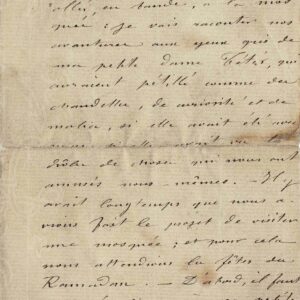 allés, en bande, à la mos
quée ; je vais raconter nos
aventures aux yeux gris de
ma petite dame Tétés, qui
auraient pétillé comme des
chandelles, de curiosité et de
malice, si elle avait été avec
nous, si elle avait vu la
drôle de chose qui nous ont
amusés nous-mêmes. — Il y
avait longtemps que nous a-
vions fait le projet de visiter
une mosquée ; et pour cela
nous attendions la fête du
Ramadan. — D'abord, il faut